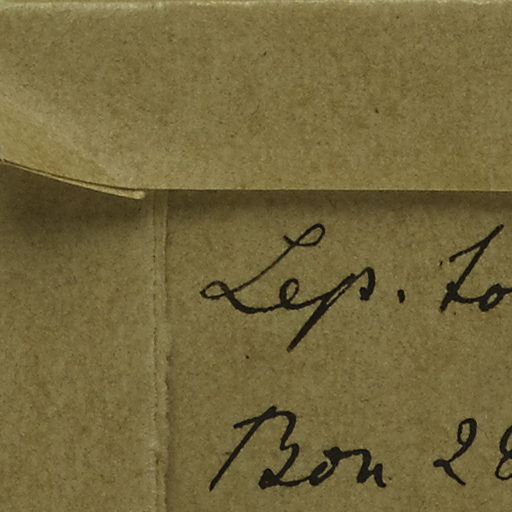 Lep. to
Bon 28